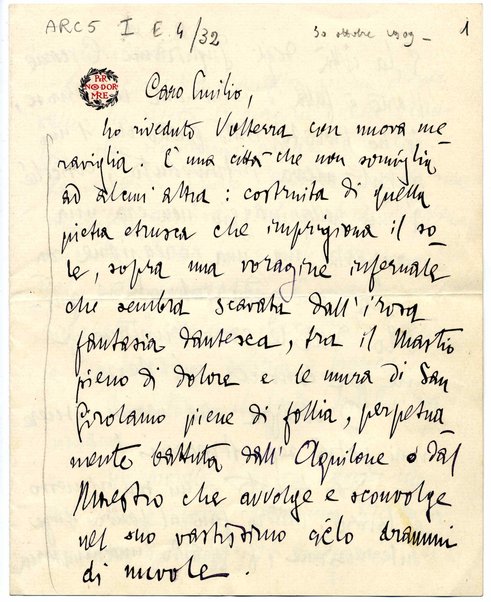 ARC5 I E. 4/32
30 ottobre 1909 -
1
PER
NON DOR
MIRE
Caro Emilio,
ho riveduto Volterra con nuova me
raviglia. È una città che non somiglia
ad alcun'altra: costruita di quella
pietra etrusca che imprigiona il so
le, sopra una voragine infernale
che sembra scavata dall'irosa
fantasia dantesca, tra il Mastio
pieno di dolore e le mura di San
Girolamo piene di follia, perpetua
mente battuta dall'Aquilone o dal
Maestro che avvolge e sconvolge
nel suo vastissimo cielo drammi
di nuvole.